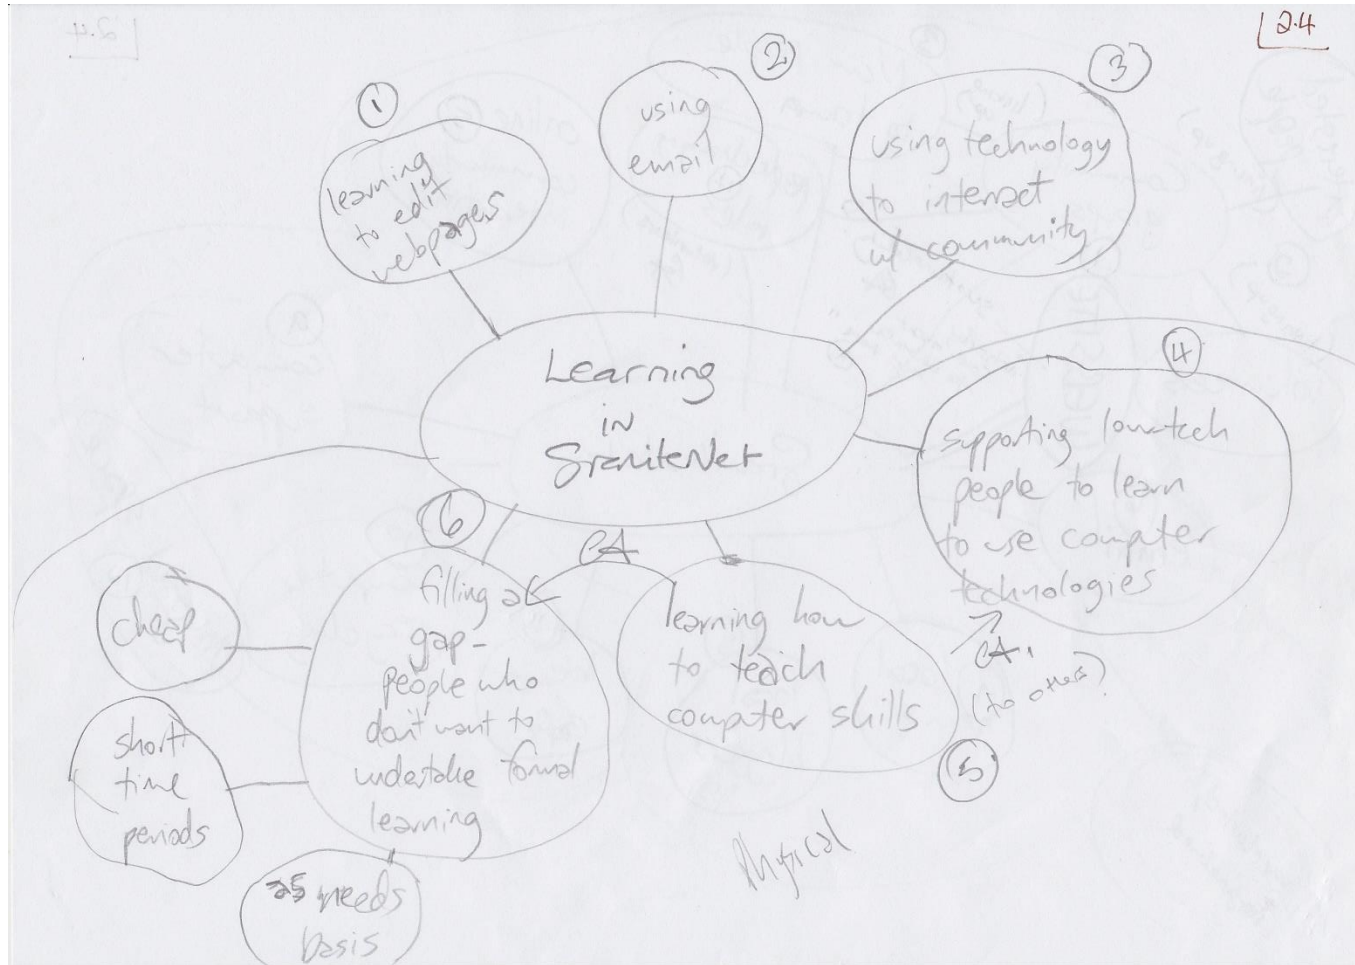 2.4
1
learning
to edit
webpages
2
using
email
3
using technology
to interact
w/ community
Learning
in
GraniteNet
4
supporting low-tech
people to learn
to use computer
technologies
(to others)
5
learning how
to teach
computer skills
6
filling a
gap -
people who
don't want to
undertake formal
learning
cheap
short
time
periods
as needs
basis
Physical